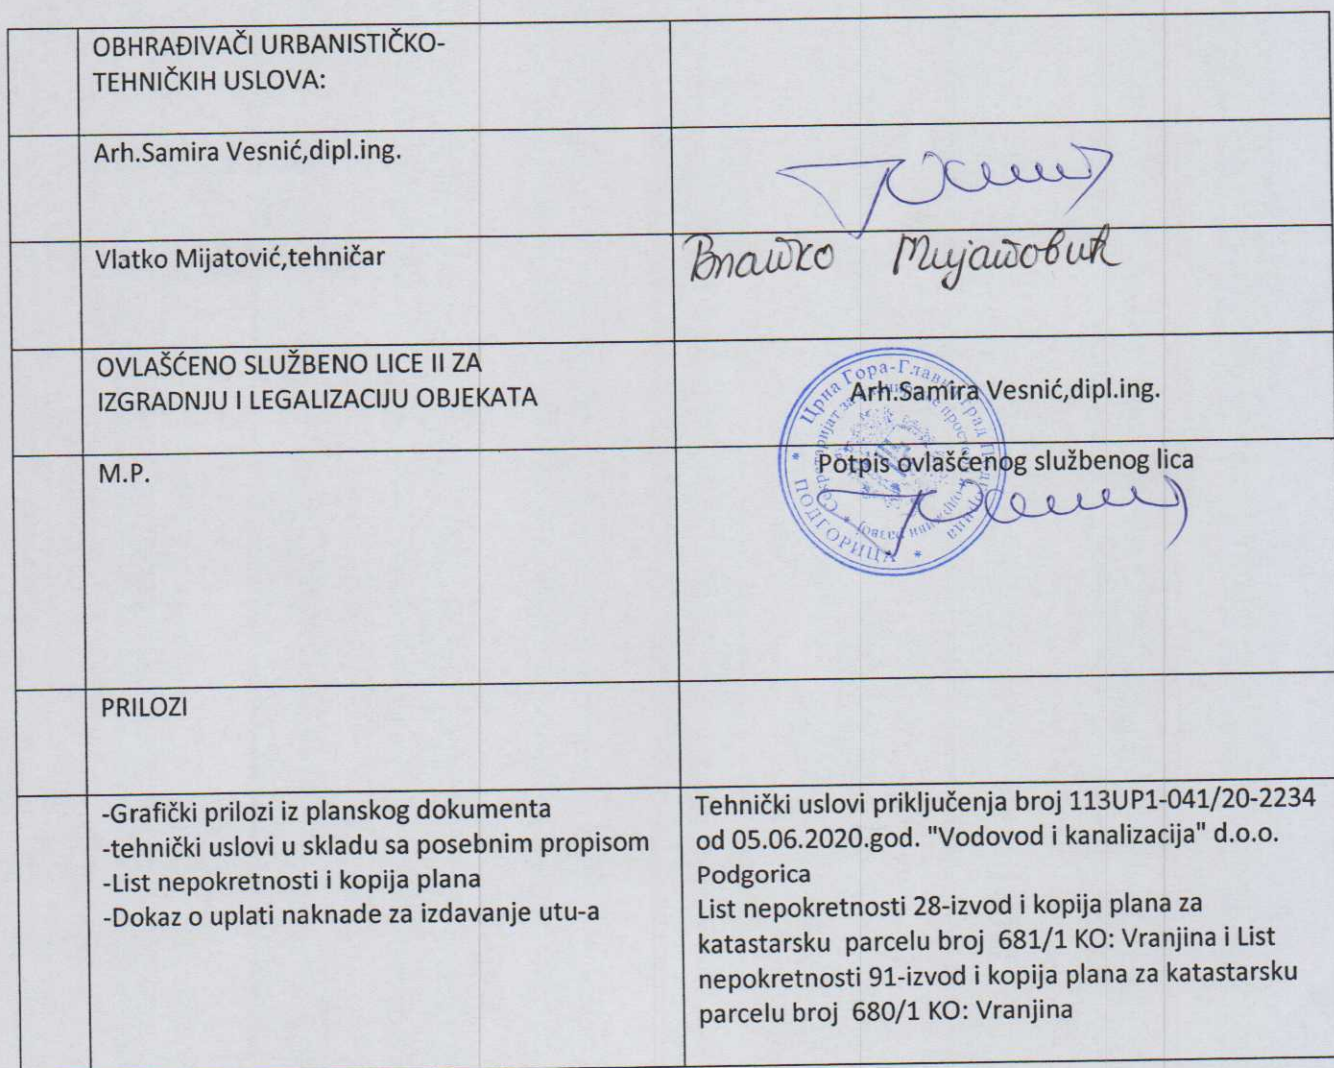 OBHRAĐIVAČI URBANISTIČKO-
TEHNIČKIH USLOVA:
Arh.Samira Vesnić,dipl.ing.
Vlatko Mijatović,tehničar
Влатко Мијатовић
OVLAŠĆENO SLUŽBENO LICE II ZA
IZGRADNJU I LEGALIZACIJU OBJEKATA
Arh.Samira Vesnić,dipl.ing.
M.P.
Potpis ovlašćenog službenog lica
Црна Гора-Главни град Подгорица
ПОДГОРИЦА
PRILOZI
-Grafički prilozi iz planskog dokumenta
-tehnički uslovi u skladu sa posebnim propisom
-List nepokretnosti i kopija plana
-Dokaz o uplati naknade za izdavanje utu-a
Tehnički uslovi priključenja broj 113UP1-041/20-2234
od 05.06.2020.god. "Vodovod i kanalizacija" d.o.o.
Podgorica
List nepokretnosti 28-izvod i kopija plana za
katastarsku parcelu broj 681/1 KO: Vranjina i List
nepokretnosti 91-izvod i kopija plana za katastarsku
parcelu broj 680/1 KO: Vranjina